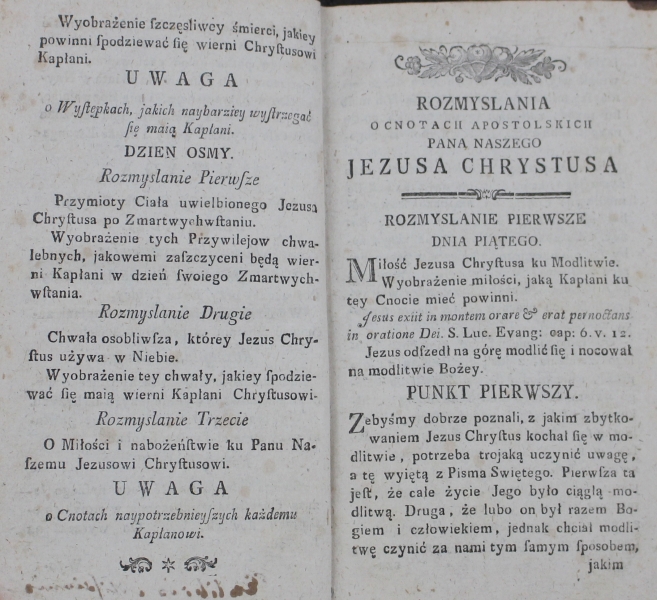 Wyobrażenie ſzczęsliwey śmierci, jakiey
powinni ſpodziewać ſię wierni Chryſtusowi
Kapłani.
UWAGA
o Wyſtępkach, jakich naybarziey wyſtrzegać
ſię maią Kapłani.
DZIEN OSMY.
Rozmyslanie Pierwſze
Przymioty Ciała uwielbionego Jezusa
Chryſtusa po Zmartwychwſtaniu.
Wyobrażenie tych Przywilejow chwa-
lebnych, jakowemi zaſzczyceni będą wier-
ni Kapłani w dzień ſwoiego Zmartwych-
wſtania.
Rozmyslanie Drugie
Chwała osobliwſza, ktòrey Jezus Chry-
ſtus używa w Niebie.
Wyobrażenie tey chwały, jakiey ſpodzie-
wać ſię maią wierni Kapłani Chryſtusowi.
Rozmyslanie Trzecie
O Miłości i nabożeńſtwie ku Panu Na-
ſzemu Jezusowi Chryſtusowi.
UWAGA
o Cnotach naypotrzebnieyſzych każdemu
Kapłanowi.
ROZMYSLANIA
O CNOTACH APOSTOLSKICH
PANA NASZEGO
JEZUSA CHRYSTUSA
ROZMYSLANIE PIERWSZE
DNIA PIĄTEGO.
Miłość Jezusa Chryſtusa ku Modlitwie.
Wyobrażenie miłości, jaką Kapłani ku
tey Cnocie mieć powinni.
Jesus exiit in montem orare & erat pernoctans
in oratione Dei. S. Luc. Evang: cap: 6. v. 12.
Jezus odſzedł na gòrę modlić ſię i nocował
na modlitwie Bożey.
PUNKT PIERWSZY.
Zebyśmy dobrze poznali, z jakim zbytko-
waniem Jezus Chryſtus kochał ſię w mo-
dlitwie, potrzeba trojaką uczynić uwagę,
a tę wyiętą z Pisma Swiętego. Pierwſza ta
jeſt, że całe życie Jego było ciągłą mo-
dlitwą. Druga, że lubo on był razem Bo-
giem i człowiekiem, jednak chciał modli-
twę czynić za nami tym ſamym ſposobem,
jakim